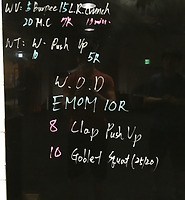 WU: 5 Burpee 15 L.R. Crunch
20 M.C 7R 13min
WT: W- Push Up
10 5R
W.O.D
EMOM 10R
8 Clap Push Up
10 Goblet Squat (25/20)